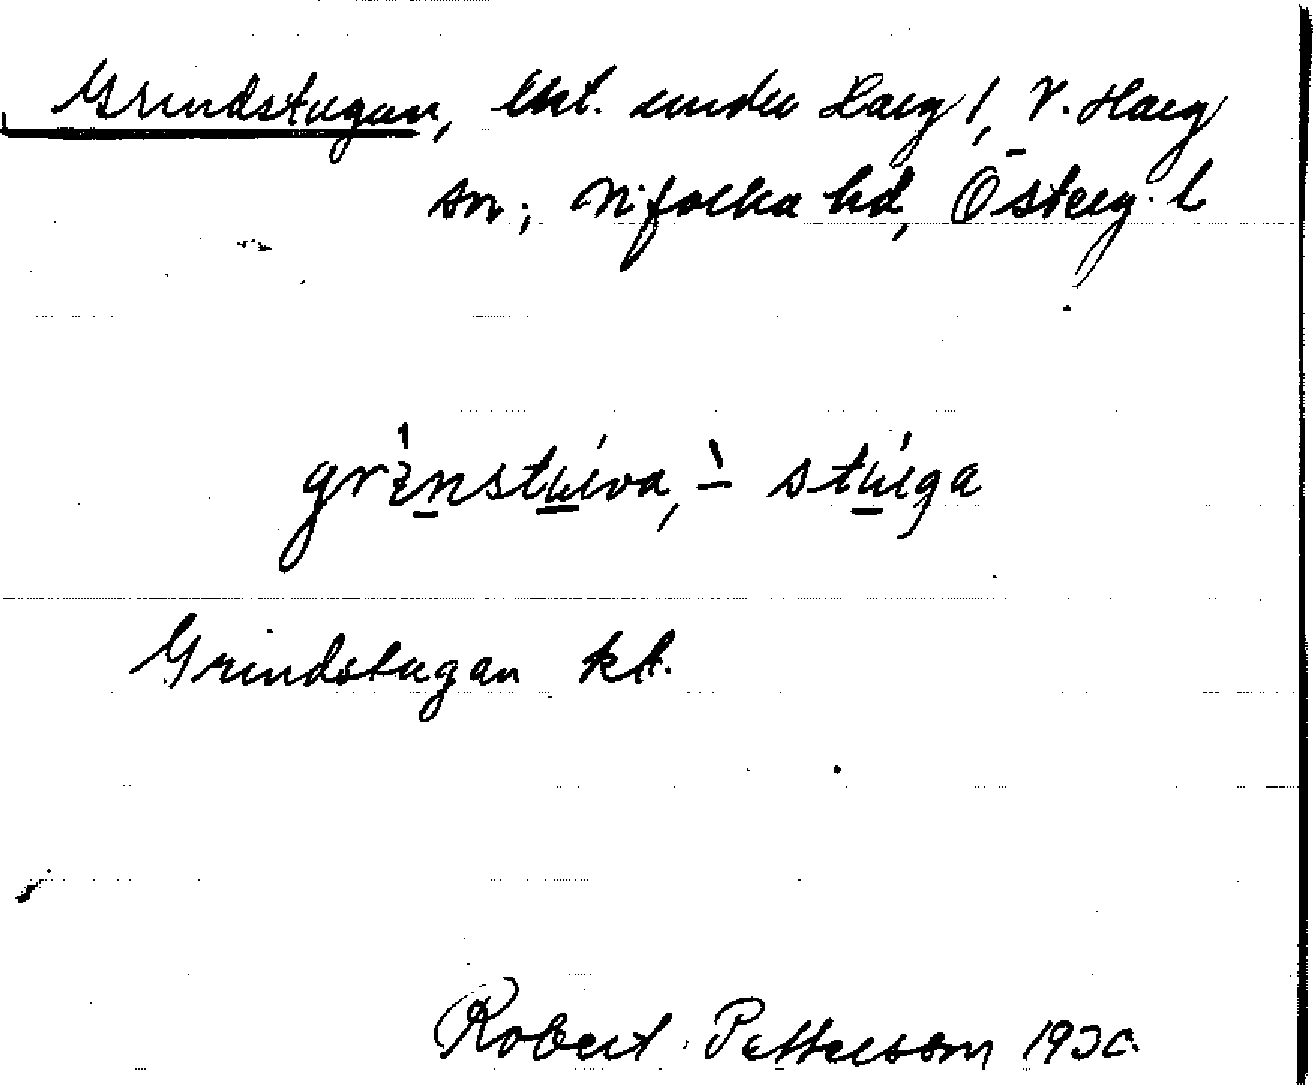 Grindstugan, lht. under Harg 1, V. Harg
sn; Vifolka hd, Österg. l
grinstuva, ⸌ stuga
Grindstugan kt.
Robert Pettersson 1930